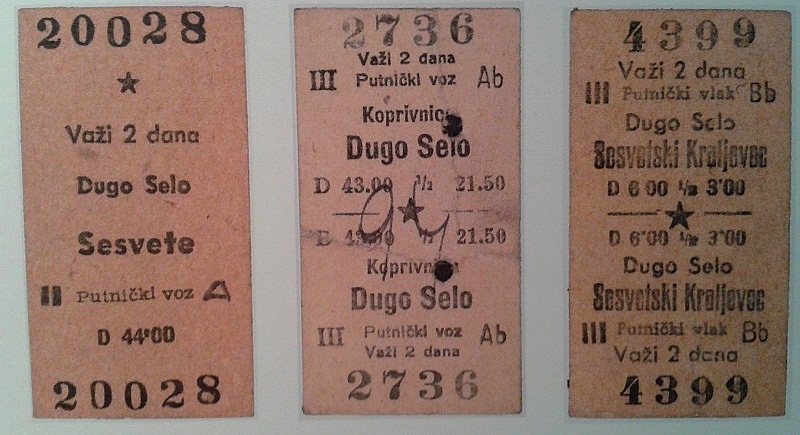 20028
Važi 2 dana
Dugo Selo
Sesvete
II Putnički voz A
D 44'00
20028
2736
Važi 2 dana
III Putnički voz Ab
Koprivnica
Dugo Selo
D 43.00 1/2 21.50
D 43.00 1/2 21.50
Koprivnica
Dugo Selo
III Putnički voz Ab
Važi 2 dana
2736
4399
Važi 2 dana
III Putnički vlak Bb
Dugo Selo
Sesvetski Kraljevec
D 6'00 1/2 3'00
D 6'00 1/2 3'00
Dugo Selo
Sesvetski Kraljevec
III Putnički vlak Bb
Važi 2 dana
4399